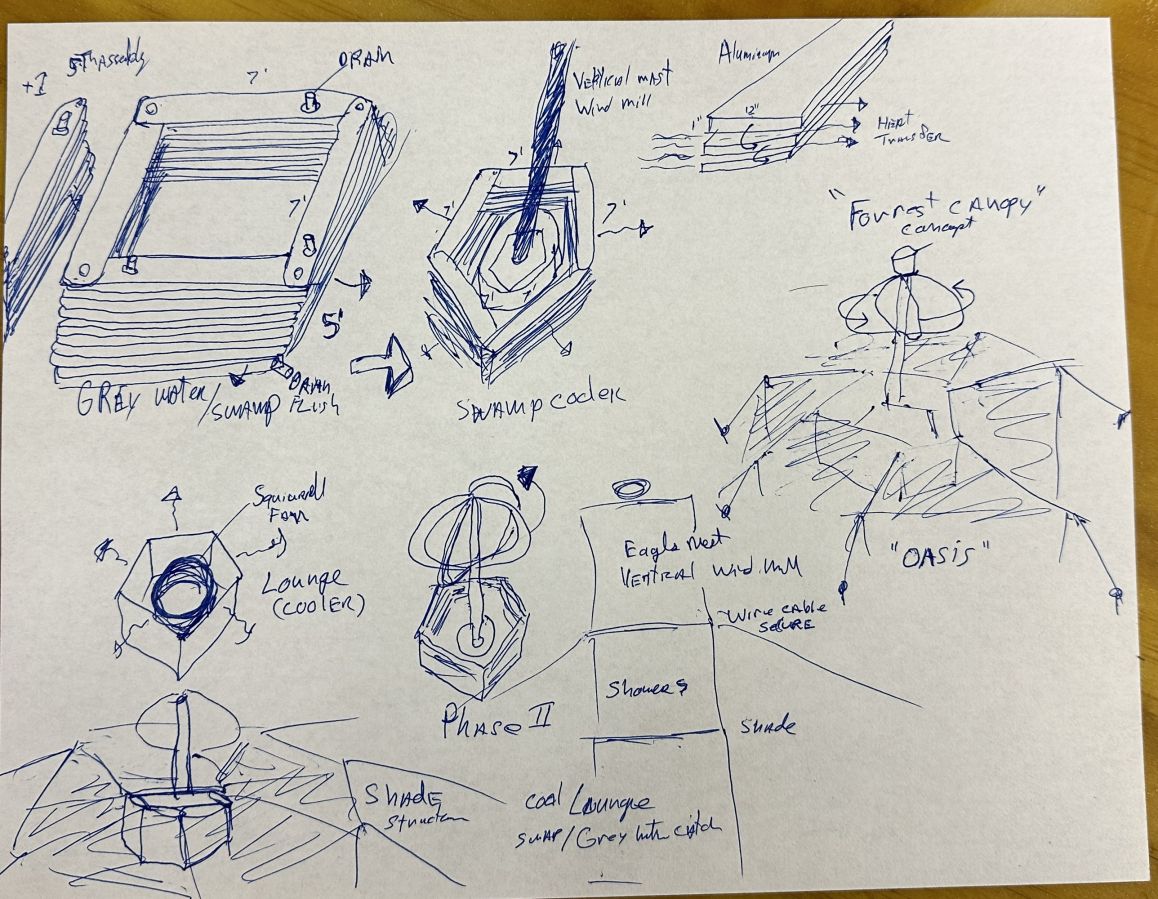 +1
7'
DRAIN
7'
5'
GREY WATER/SWAMP
DRAIN
FLUSH
VERTICAL MAST
WIND MILL
7'
7'
7'
SWAMP COOLER
Aluminum
1"
12"
HEAT
TRANSFER
"FORREST CANOPY"
CONCEPT
"OASIS"
Squirrell
Fan
LOUNGE
(COOLER)
PHASE II
Eagle Nest
VERTICAL Wind Mill
Wire CABLE
SECURE
Showers
SHADE
SHADE
Structure
COOL Lounge
SWAP/Grey